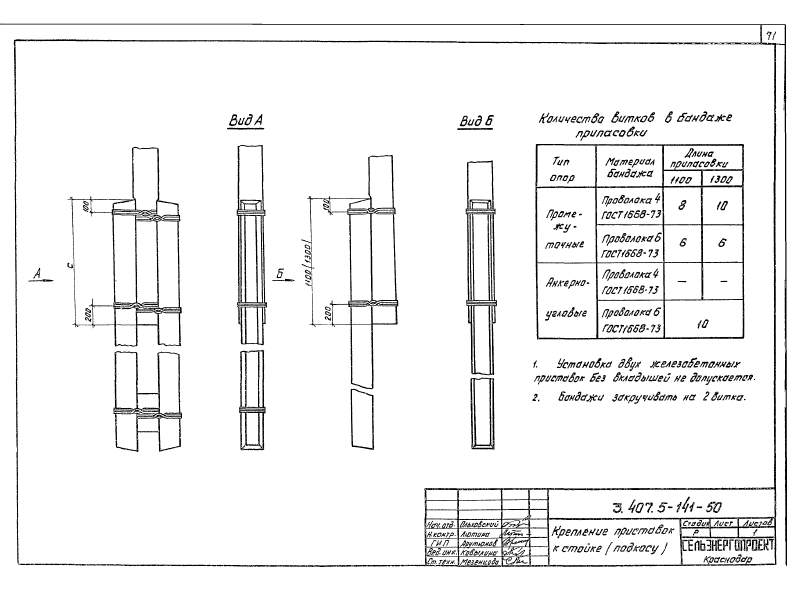 71
Вид А
Вид Б
Количество витков в бандаже
припасовки
Тип опор
Материал бандажа
Длина припасовки
1100 1300
Проме-
жу-
точные
Проволока 4 ГОСТ 1668-73
8 10
Проволока 6 ГОСТ 1668-73
6 6
Анкерно-
угловые
Проволока 4 ГОСТ 1668-73
— —
Проволока 6 ГОСТ 1668-73
10
100
С
200
А
Б
100
1100 (1300)
200
1. Установка двух железобетонных
приставок без вкладышей не допускается.
2. Бандажи закручивать на 2 витка.
3.407.5-141-50
Нач. отд. Ольховский
Н.контр. Лютина
ГИП
Вед. инж. Ковылина
Ст. техн. Мезенцова
Крепление приставок
к стойке (подкосу)
Стадия Лист Листов
Р 1
СЕЛЬЭНЕРГОПРОЕКТ
Краснодар